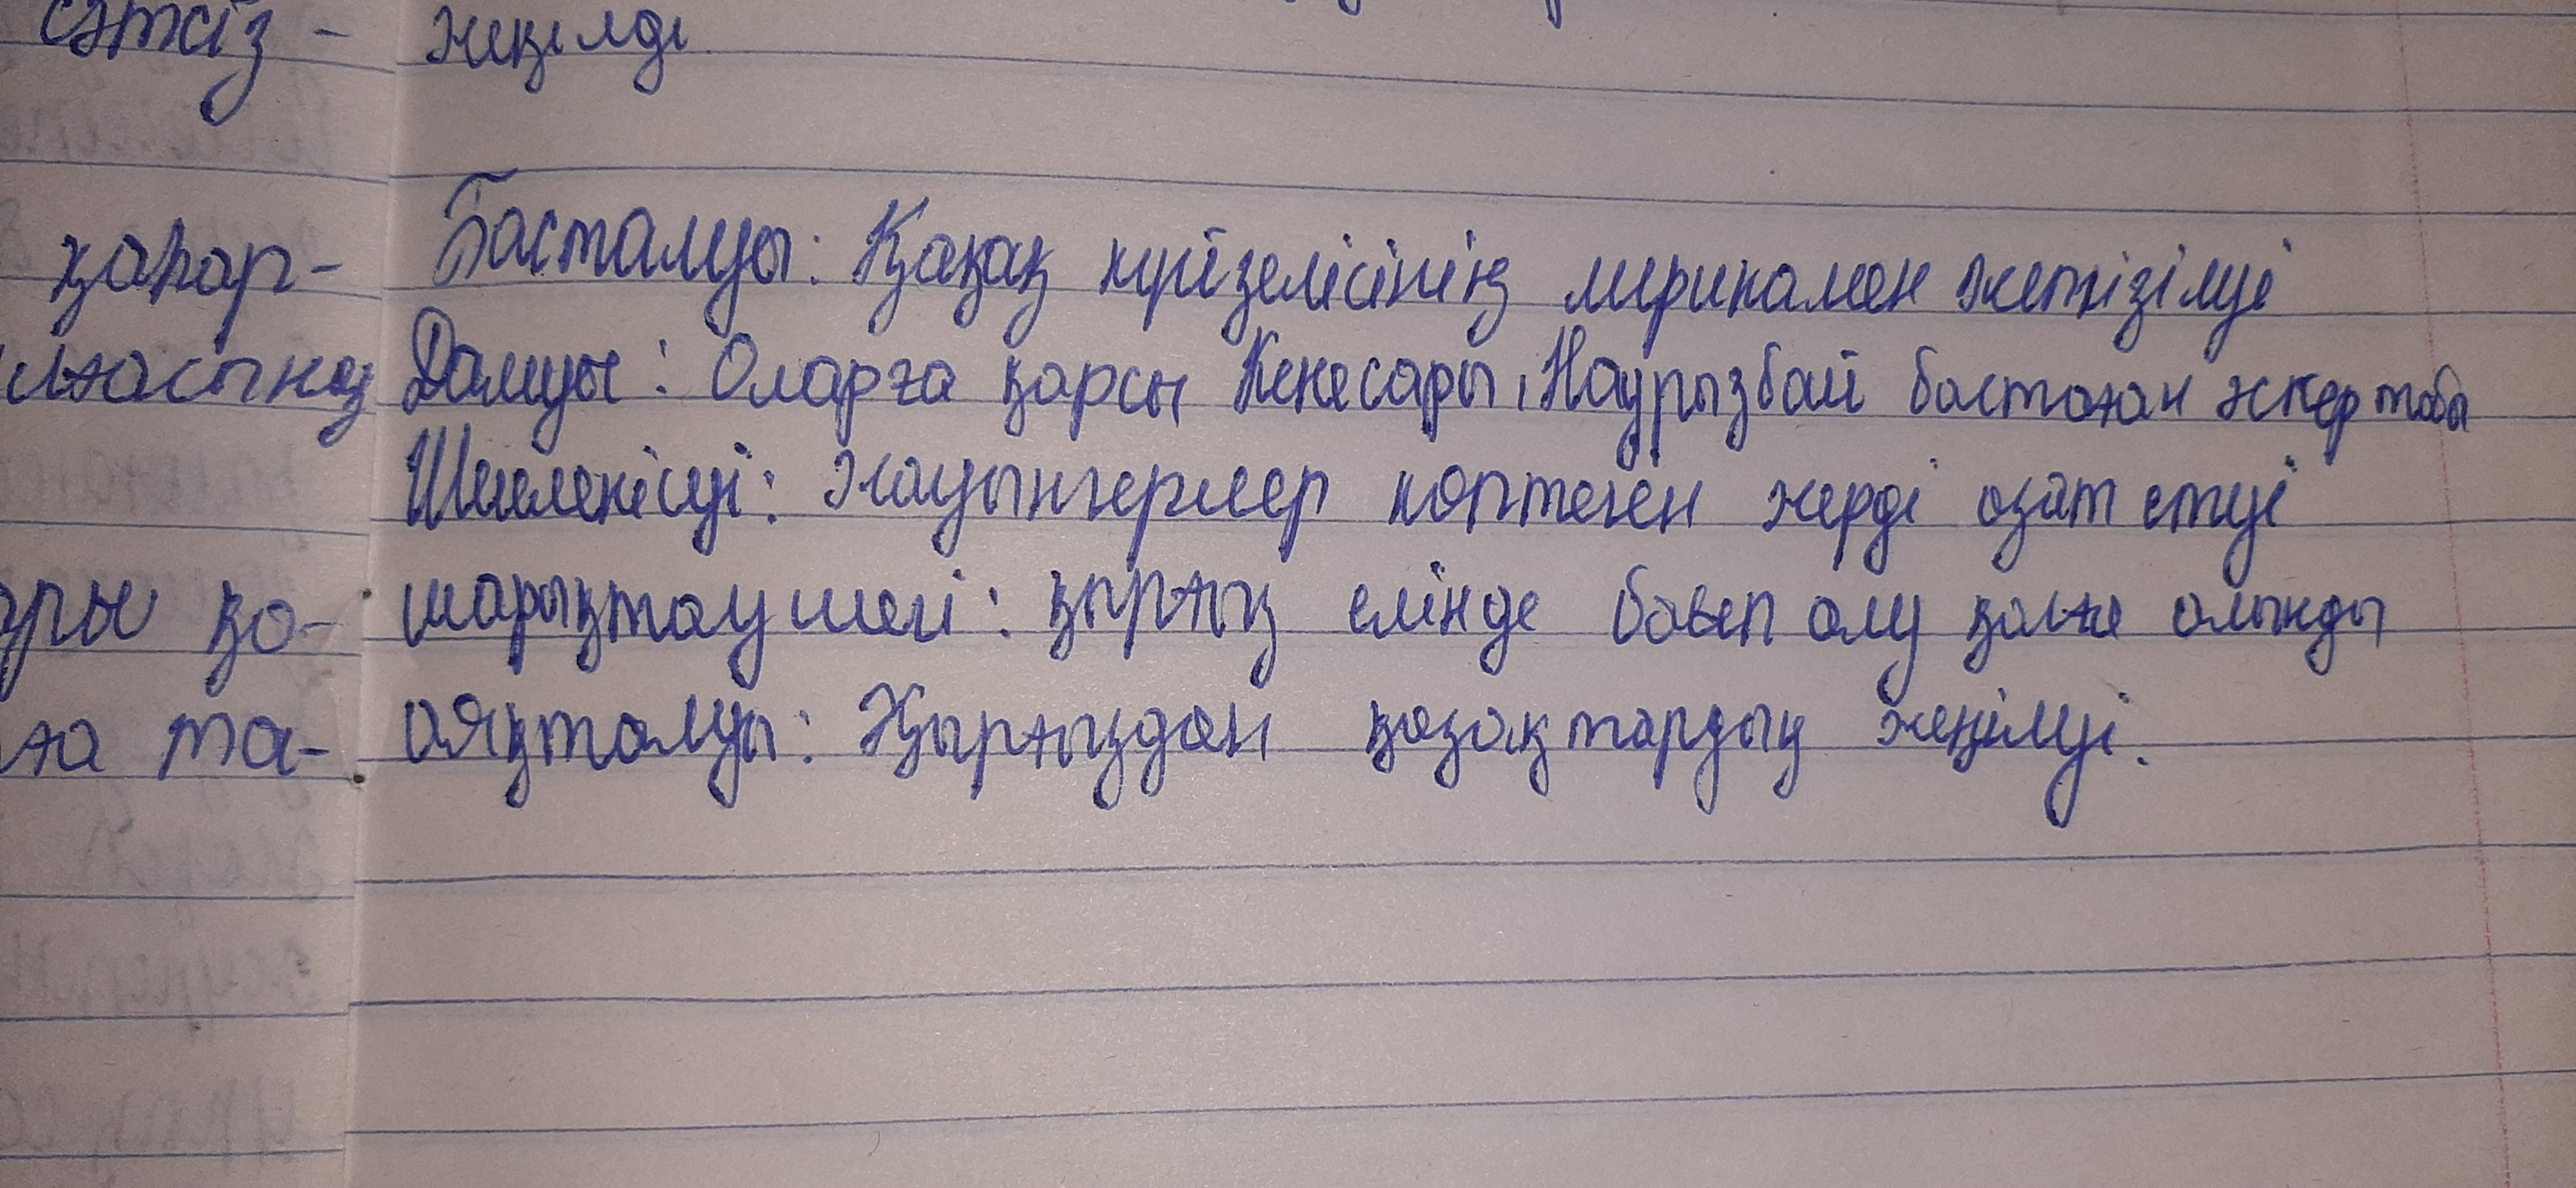 сәтсіз - жеңілді
қаһар- Басталуы: Қазақ күйзелісінің лирикамен жеткізілуі
Дамуы: Оларға қарсы Кенесары, Наурызбай бастаған әскер тобы
Шиеленісуі: Жауынгерлер көптеген жерді азат етуі
қо- шарықтау шегі: қырғыз елінде бәсеп алу қолға алынды
ға та- аяқталуы: Қырғыздан қазақтардың жеңілуі.